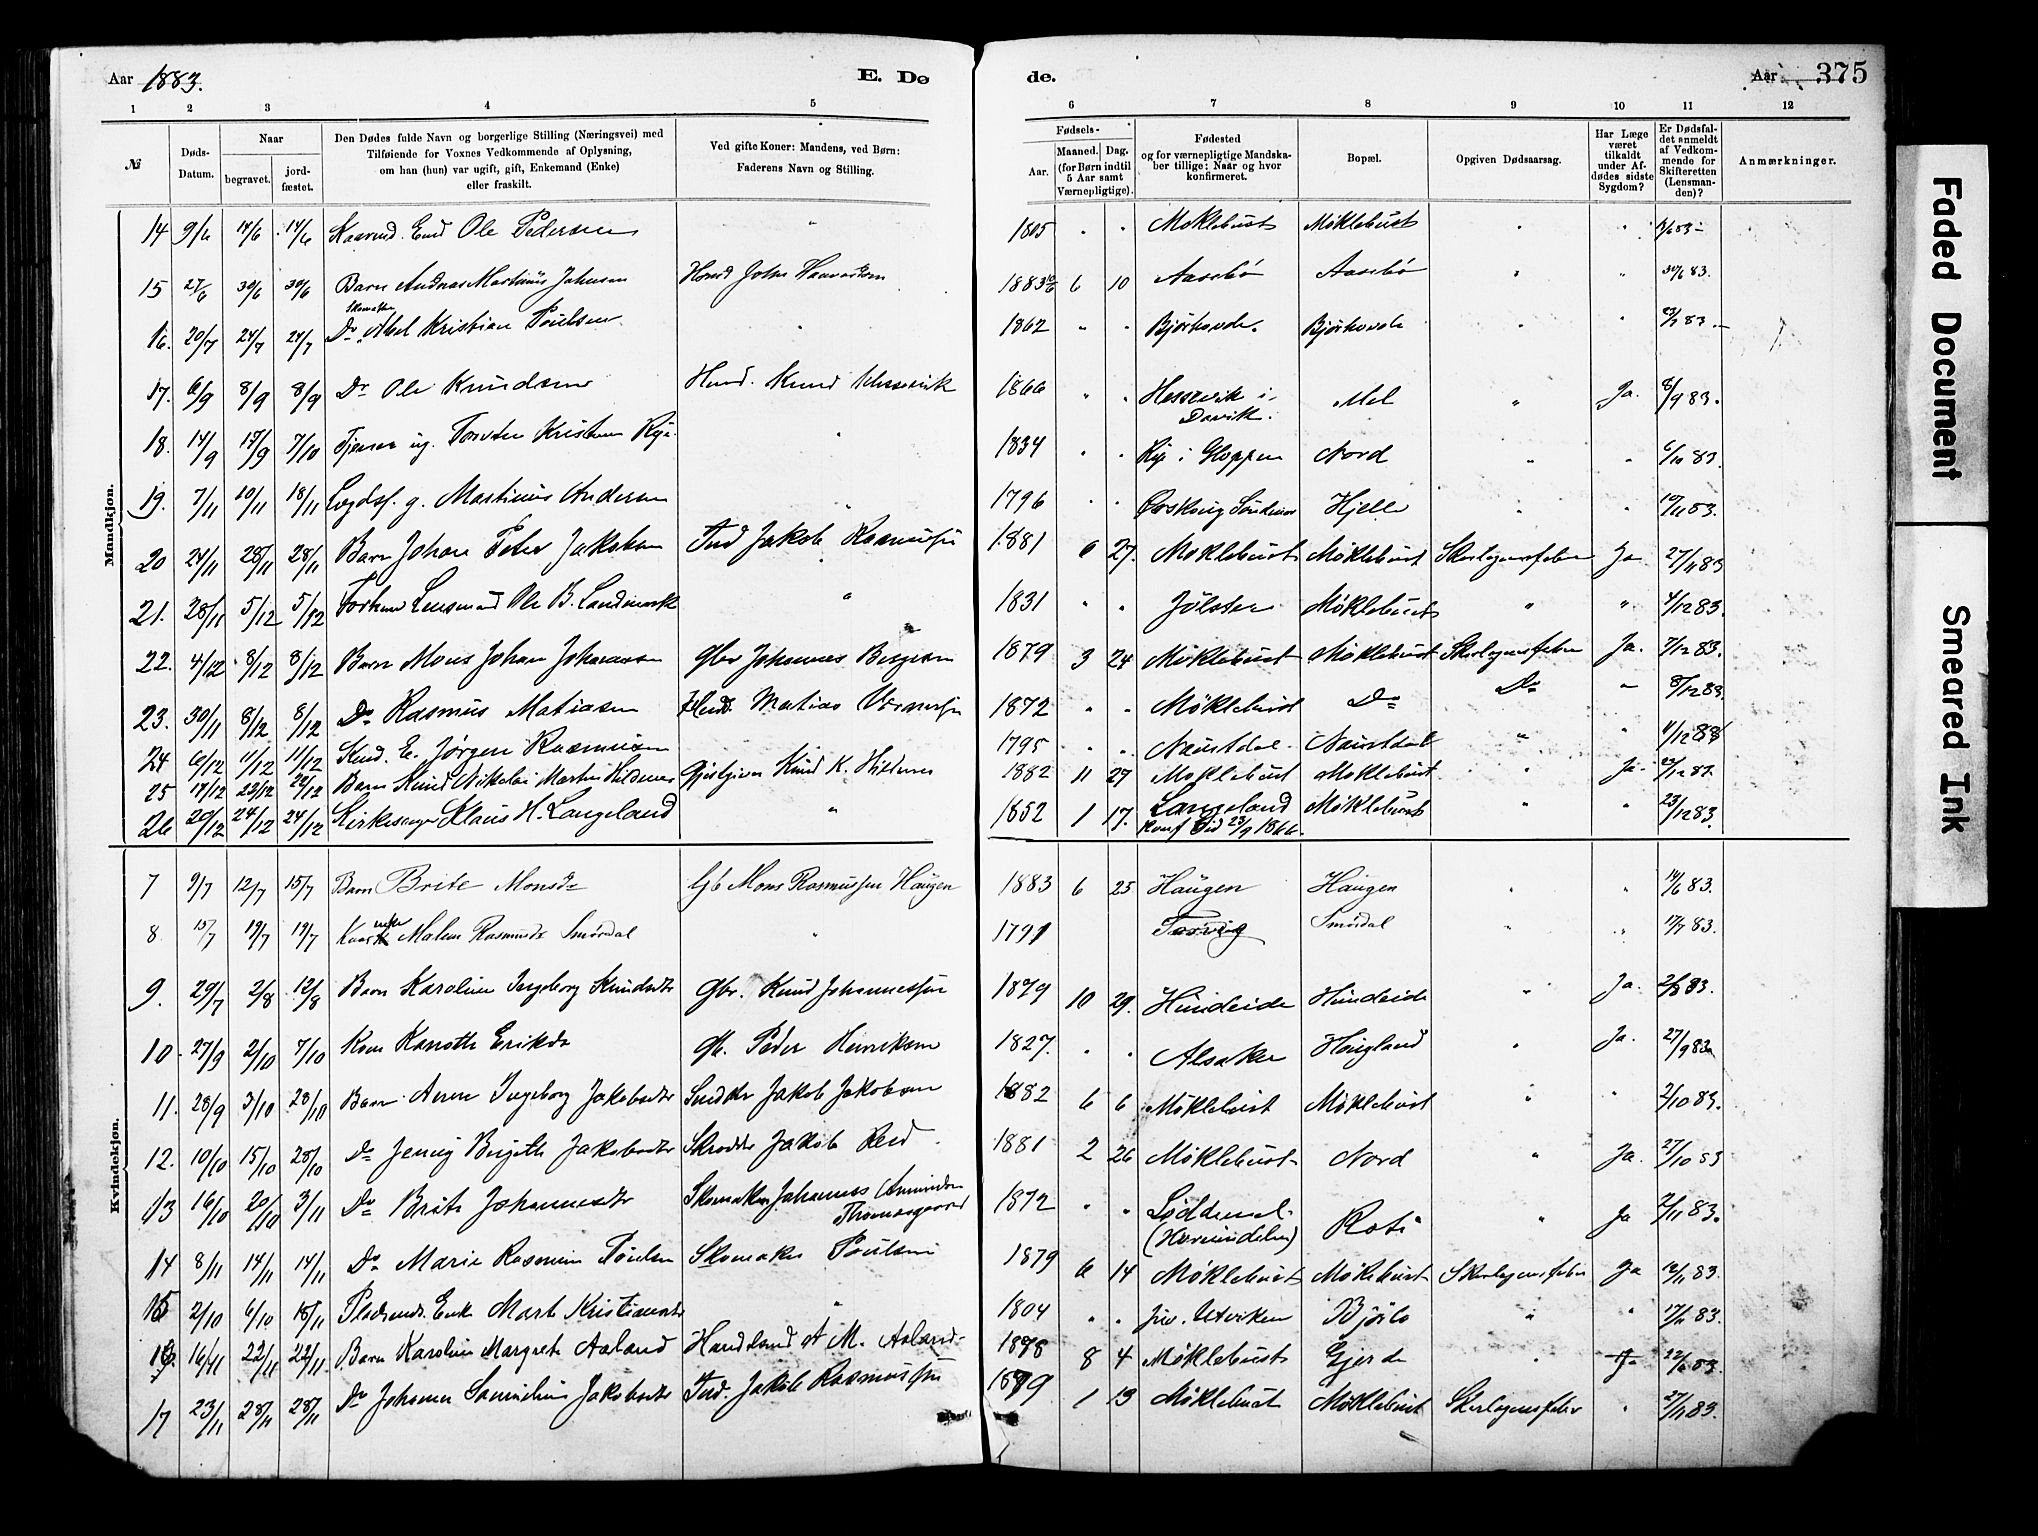 Aar 1883. E. Dø
de. Aar 375
1 2 3 4 5
6 7 8 9 10 11 12
№ Døds-Datum. Naar begravet. jordfæstet. Den Dødes fulde Navn og borgerlige Stilling (Næringsvei) med Tilføiende for Voxnes Vedkommende af Oplysning, om han (hun) var ugift, gift, Enkemand (Enke) eller fraskilt. Ved gifte Koner: Mandens, ved Børn: Faderens Navn og Stilling.
Fødsels- Aar. Maaned. Dag. (for Børn indtil 5 Aar samt Værnepligtige). Fødested og for værnepligtige Mandskaber tillige: Naar og hvor konfirmeret. Bopæl. Opgiven Dødsaarsag. Har Læge været tilkaldt under Afdødes sidste Sygdom? Er Dødsfaldet anmeldt af Vedkommende for Skifteretten (Lensmanden)? Anmærkninger.
Mandkjøn.
14 9/6 14/6 14/6 Ole Pedersen " 1805 " " Moklebust Møklebust " "
15 27/6 30/6 30/6 Barn Andreas Martinus Johnsen John 1883 6 10 Aasebø Aasebø " " 30/6 83.
16. 20/7 24/7 24/7 Do Skomaker Abel Kristian Poulsen " 1862 " " " " 83
17. 6/9 8/9 8/9 Do Ole Knudsen Knud 1866 " " Hessevik i Davik. Mel " Ja. 8/9 83.
18. 14/9 17/9 7/10 ug. Kristian Rye " 1834 " " Rye i Gloppen Nord " " 6/10 83.
19. 7/11 10/11 18/11 Lægdsl. g. Martinus Andersen " 1796 " " Ørskoug Søndmør Hjelle " " 10/11 83.
20 24/11 28/11 28/11 Barn Johan Peter Jakobsen Ind Jakob Rasmussen 1881 6 27. Moklebust Møklebust Skarlagensfeber Ja 27/11 83
21. 28/11 5/12 5/12 Lensmand Ole B. Landmark " 1831 " " Jølster Møklebust " " 4/12 83.
22. 4/12 8/12 8/12 Barn Mons Johan Johannesen Gbr Johannes 1879 3 24 Møklebust Møklebust Skarlagensfeber Ja. 7/12 83.
23. 30/11 8/12 8/12 Do Rasmus Matiasen Matias 1872 " " Møklebust Do Do " 8/12 83.
24 6/12 11/12 11/12 E. Jørgen Rasmusen 1795 " " Naustdal Naustdal " " 11/12 83
25 17/12 22/12 22/12 Barn Knud Nikolai Martin Hildenes Gjestgiver Knud K. Hildenes 1882 11 27 Moklebust Moklebust " Ja 22/12 83.
26 20/12 24/12 24/12 Kirkesanger Klaus H. Langeland " 1852 1 17. Langeland Konf Eid 23/9 1866. Møklebust " " 23/12 83.
Kvindekjøn.
7 9/7 12/7 15/7 Barn Brite Monsdr Gb Mons Rasmussen Haugen 1883 6 25 Haugen Haugen " " 14/6 83.
8 15/7 19/7 19/7 enke Malene Rasmusdr Smørdal " 1791 Smørdal " " 17/7 83.
9. 29/7 2/8 12/8 Barn Karoline Ingeborg Knudsdtr Gbr. Knud Johannessen 1879 10 29. Hundeide Hundeide " Ja. 2/8 83.
10 27/9 2/10 7/10 Kone Eriksdr Gb. Peder Henriksen 1827. " " Alsaker Hougland " Ja. 27/9 83
11. 28/9 3/10 28/10 Barn Anne Ingeborg Jakobsdtr Snedker Jakob Jakobsen 1882 6 6 Møklebust Møklebust " " 2/10 83.
12. 10/10 15/10 28/10 Do Jenny Birgitte Jakobsdtr Skrædder Jakob Reed 1881 2 26 Møklebust Nord " Ja. 27/10 83
13 16/10 20/10 3/11 Do Brite Johannesdtr Skomaker Johannes Amundsen Thomasgaard 1872 " " Løddemel (Hornindalen) " Ja 2/11 83.
14 8/11 14/11 14/11 Do Marie Rasmine Poulsen Skomaker Poulsen 1879 6 14 Møklebust Møklebust Skarlagensfeber Ja 12/11 83.
15 2/10 6/10 18/11 Enke Marte Kristiansdtr " 1804 " " Utviken Bjørlo " " 83.
16. 16/11 22/11 22/11 Barn Karoline Margrete Aaland Handelsmd A M. Aaland 1878 8 4 Møklebust Gjerde " 83.
17 23/11 28/11 28/11 Do Johanne Jakobsdtr Ind. Jakob Rasmussen 1879 1 13 Møklebust Møklebust Skarlagensfeber " 27/11 83.
Faded Document
Smeared Ink